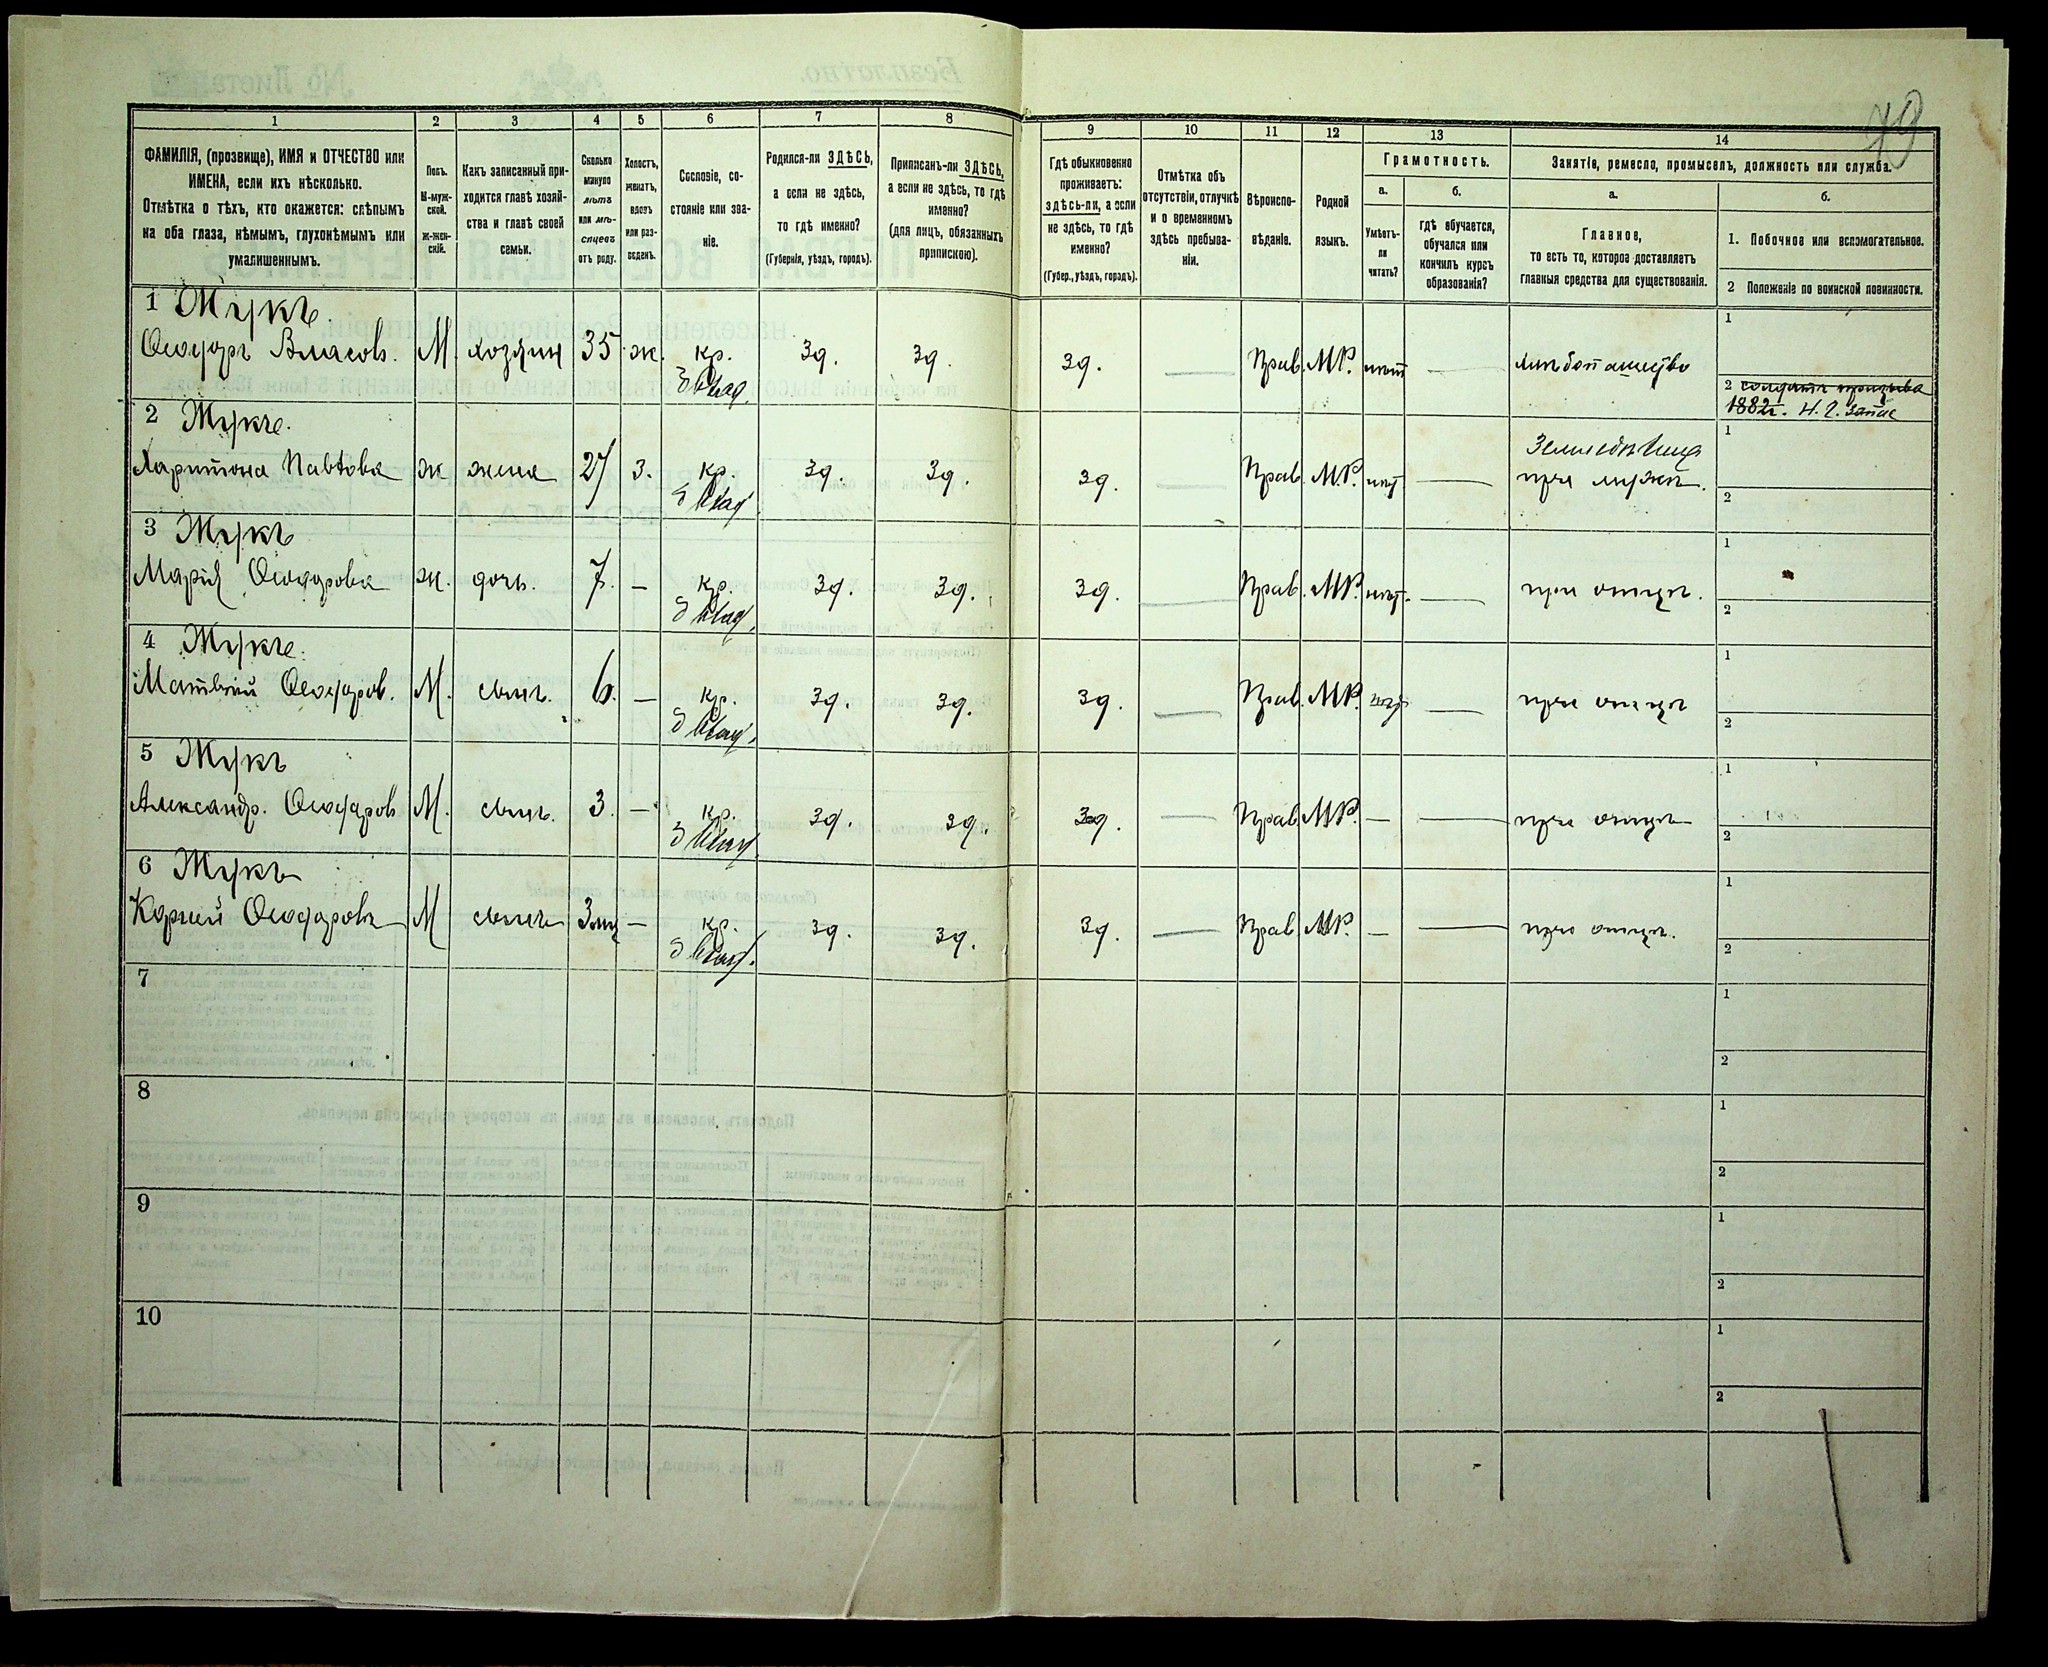 79
1 2 3 4 5 6 7 8 9 10 11 12 13 14
ФАМИЛІЯ, (прозвище), ИМЯ и ОТЧЕСТВО или
ИМЕНА, если ихъ нѣсколько.
Отмѣтка о тѣхъ, кто окажется: слѣпымъ
на оба глаза, нѣмымъ, глухонѣмымъ или
умалишеннымъ.
Полъ.
М-муж-
ской.
Ж-жен-
скій.
Какъ записанный при-
ходится главѣ хозяй-
ства и главѣ своей
семьи.
Сколько
минуло
лѣтъ
или мѣ-
сяцевъ
отъ роду.
Холостъ,
женатъ,
вдовъ
или раз-
веденъ.
Сословіе, со-
стояніе или зва-
ніе.
Родился-ли ЗДѢСЬ,
а если не здѣсь,
то гдѣ именно?
(Губернія, уѣздъ, городъ).
Приписанъ-ли ЗДѢСЬ,
а если не здѣсь, то гдѣ
именно?
(для лицъ, обязанныхъ
припискою).
Гдѣ обыкновенно
проживаетъ:
здѣсь-ли, а если
не здѣсь, то гдѣ
именно?
(Губер., уѣздъ, городъ).
Отмѣтка объ
отсутствіи, отлучкѣ
и о временномъ
здѣсь пребыва-
ніи.
Вѣроиспо-
вѣданіе.
Родной
языкъ.
Грамотность.
а.
Умѣетъ-
ли
читать?
б.
гдѣ обучается,
обучался или
кончилъ курсъ
образованія?
Занятіе, ремесло, промыселъ, должность или служба.
а.
Главное,
то есть то, которое доставляетъ
главныя средства для существованія.
б.
1. Побочное или вспомогательное.
2 Положеніе по воинской повинности.
1 Жукъ
Ѳеодоръ Власов. М хозяин 35 ж. кр. зд. зд. зд. — Прав. МР. нѣт — хлѣбопашество
1
2 солдатъ призыва
1882 г.
2 Жукъ.
Харитона Павлова ж жена 27 з. кр. зд. зд. зд. — Прав. М.Р. нѣт — при мужѣ.
1
2
3 Жукъ
Марія Ѳеодорова ж. дочь. 7. — кр. зд. зд. зд. — Прав. МР. нѣт. — при отцѣ.
1
2
4 Жукъ.
Матвѣй Ѳеодоров. М. сынъ. 6. — кр. зд. зд. зд. — Прав. МР. нѣт — при отцѣ
1
2
5 Жукъ
Александр. Ѳеодоров М. сынъ. 3. — кр. зд. зд. зд. — Прав. МР. — — при отцѣ
1
2
6 Жукъ
Корній Ѳеодоровъ М сынъ 3 мц — кр. зд. зд. зд. — Прав. МР. — — при отцѣ.
1
2
7
1
2
8
1
2
9
1
2
10
1
2